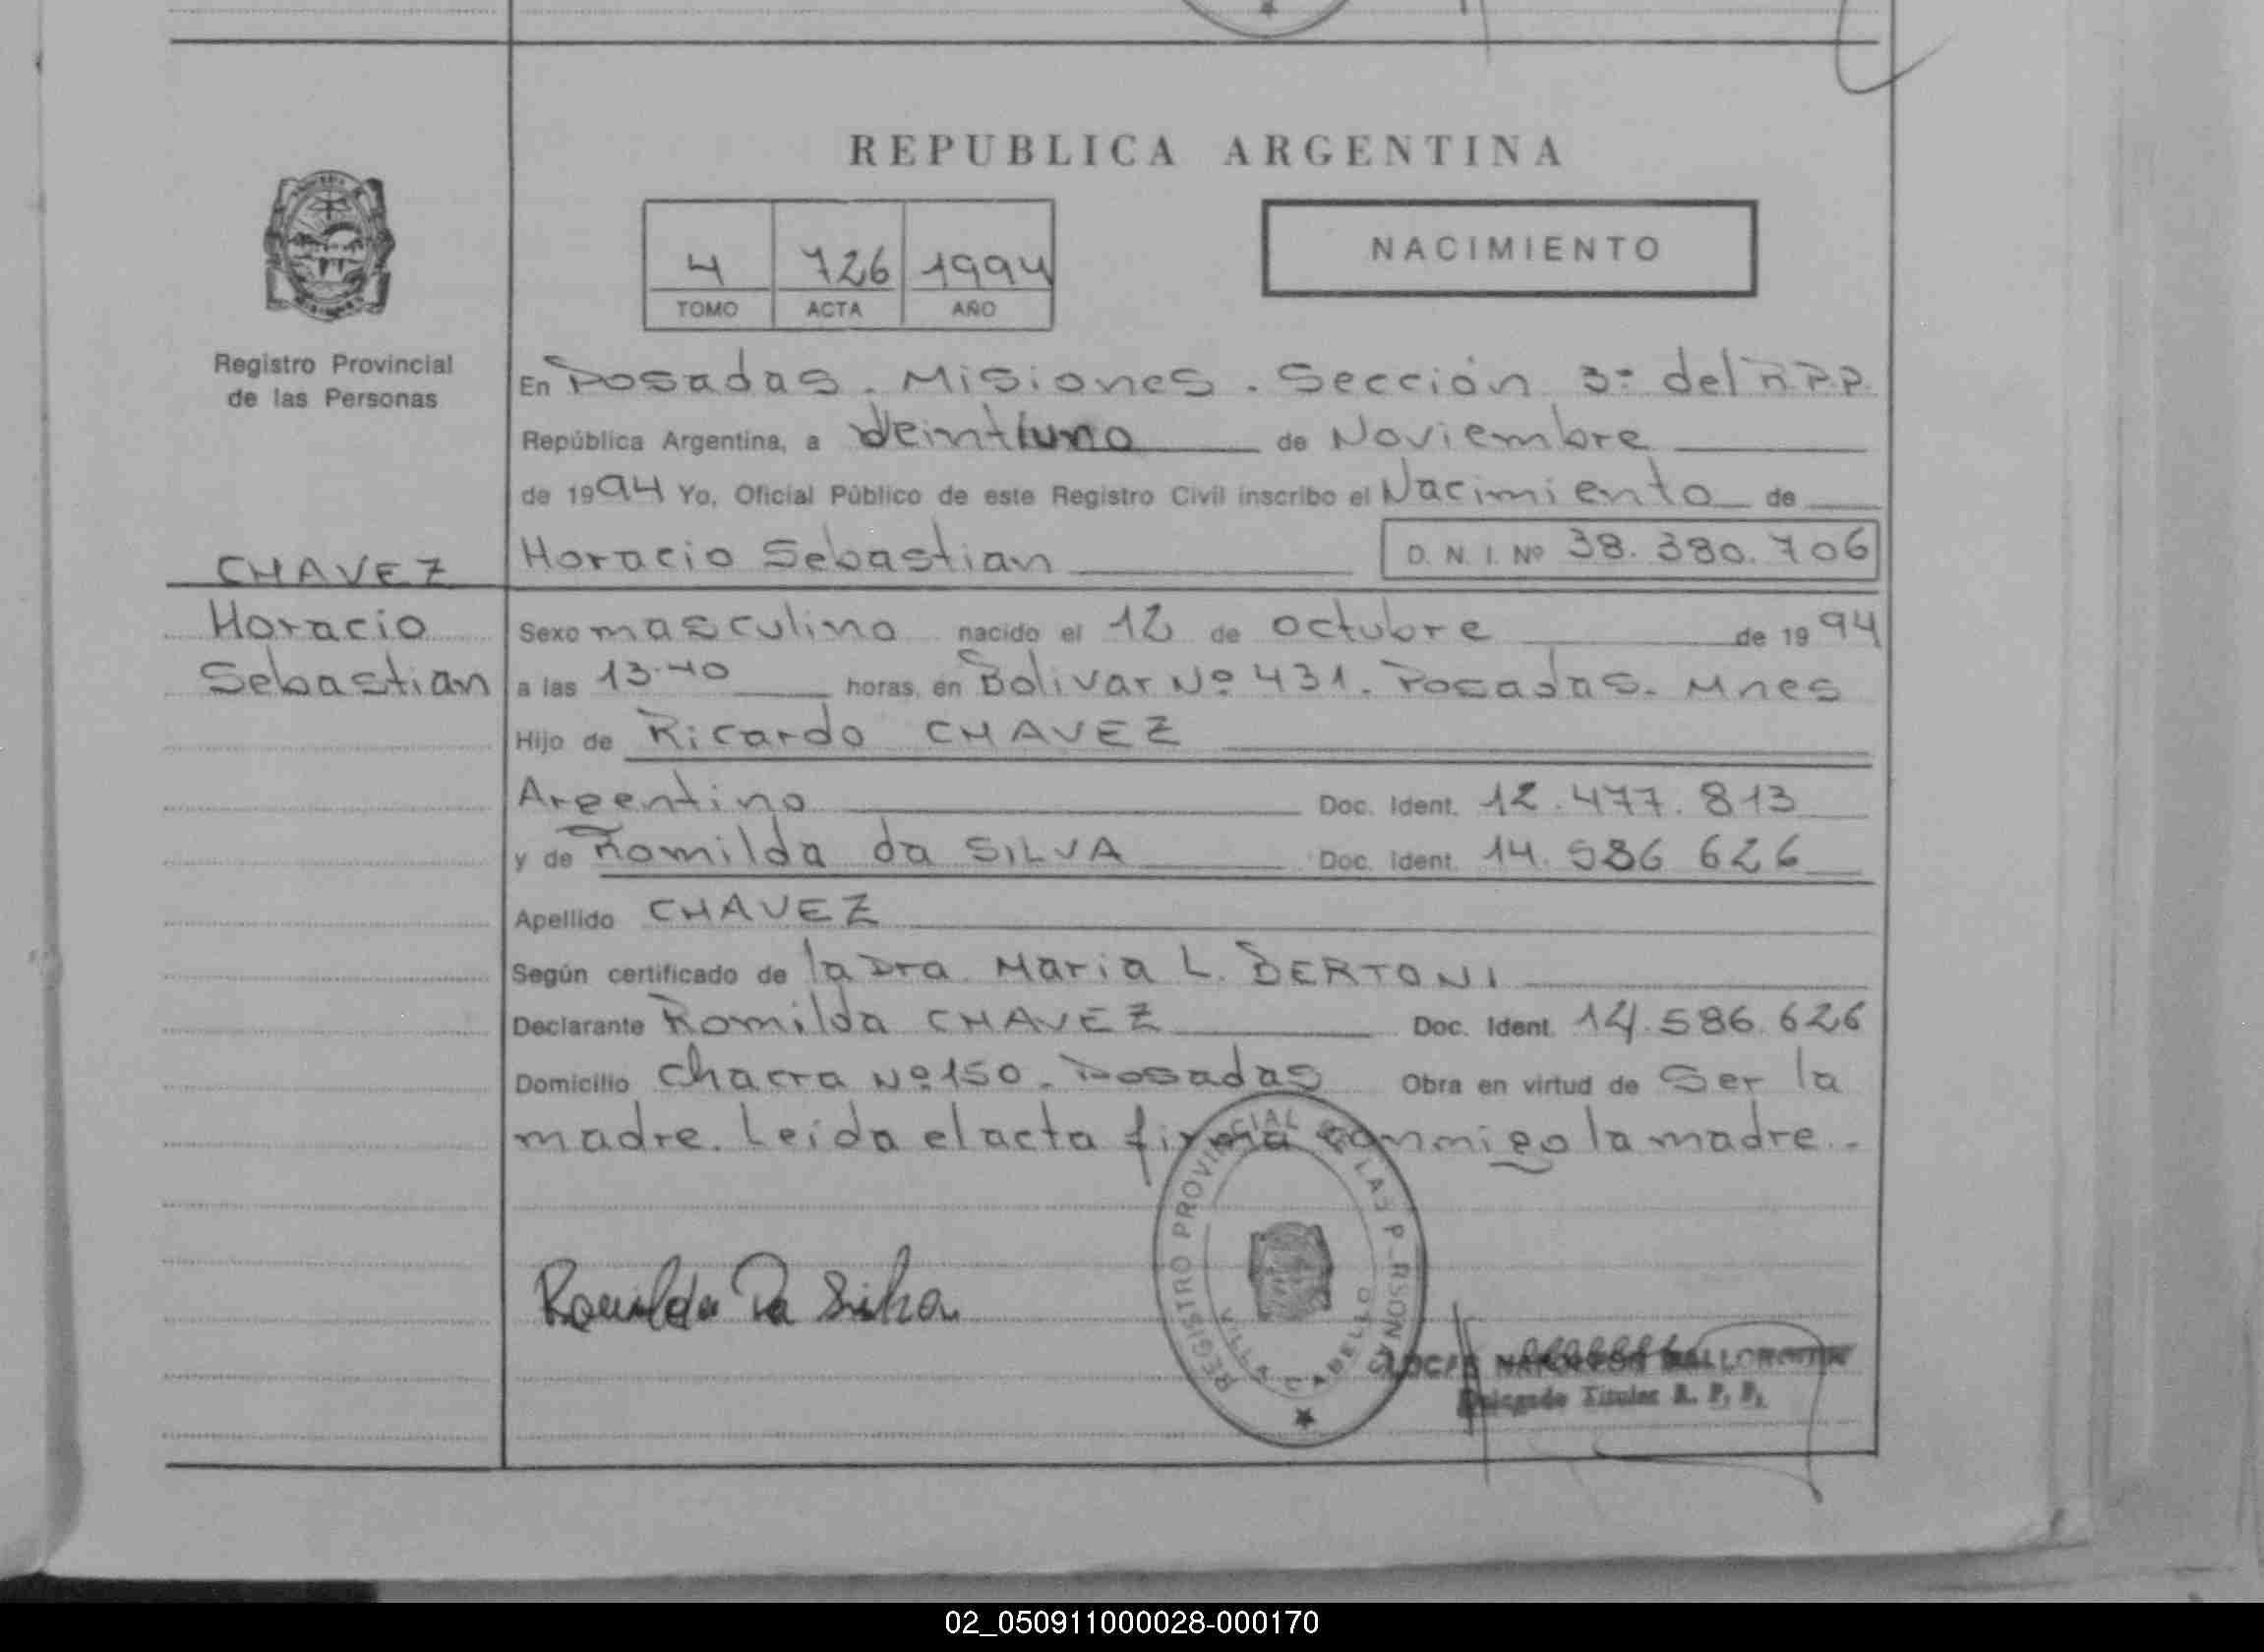 REPUBLICA ARGENTINA
4 726 1994
TOMO ACTA AÑO
NACIMIENTO
Registro Provincial
de las Personas
En Posadas. Misiones. Sección 3º del R.P.P.
República Argentina, a Veintiuno de Noviembre
de 1994 Yo, Oficial Público de este Registro Civil inscribo el Nacimiento de
CHAVEZ
Horacio
Sebastian
Horacio Sebastian D. N. I. Nº 38.380.706
Sexo masculino nacido el 12 de octubre de 1994
a las 13.40 horas, en Bolivar Nº 431. Posadas. Mnes
Hijo de Ricardo CHAVEZ
Argentino Doc. Ident. 12.477.813
y de Romilda da SILVA Doc. Ident. 14.586 626
Apellido CHAVEZ
Según certificado de la Dra Maria L. BERTONI
Declarante Romilda CHAVEZ Doc. Ident. 14.586.626
Domicilio Chacra Nº 150. Posadas Obra en virtud de Ser la
madre. Leida el acta firma conmigo la madre.-
REGISTRO PROVINCIAL DE LAS P RSONAS
VILLA CABELLO
Romilda Da Silva
Delegado Titular R. P. P.
02_050911000028-000170